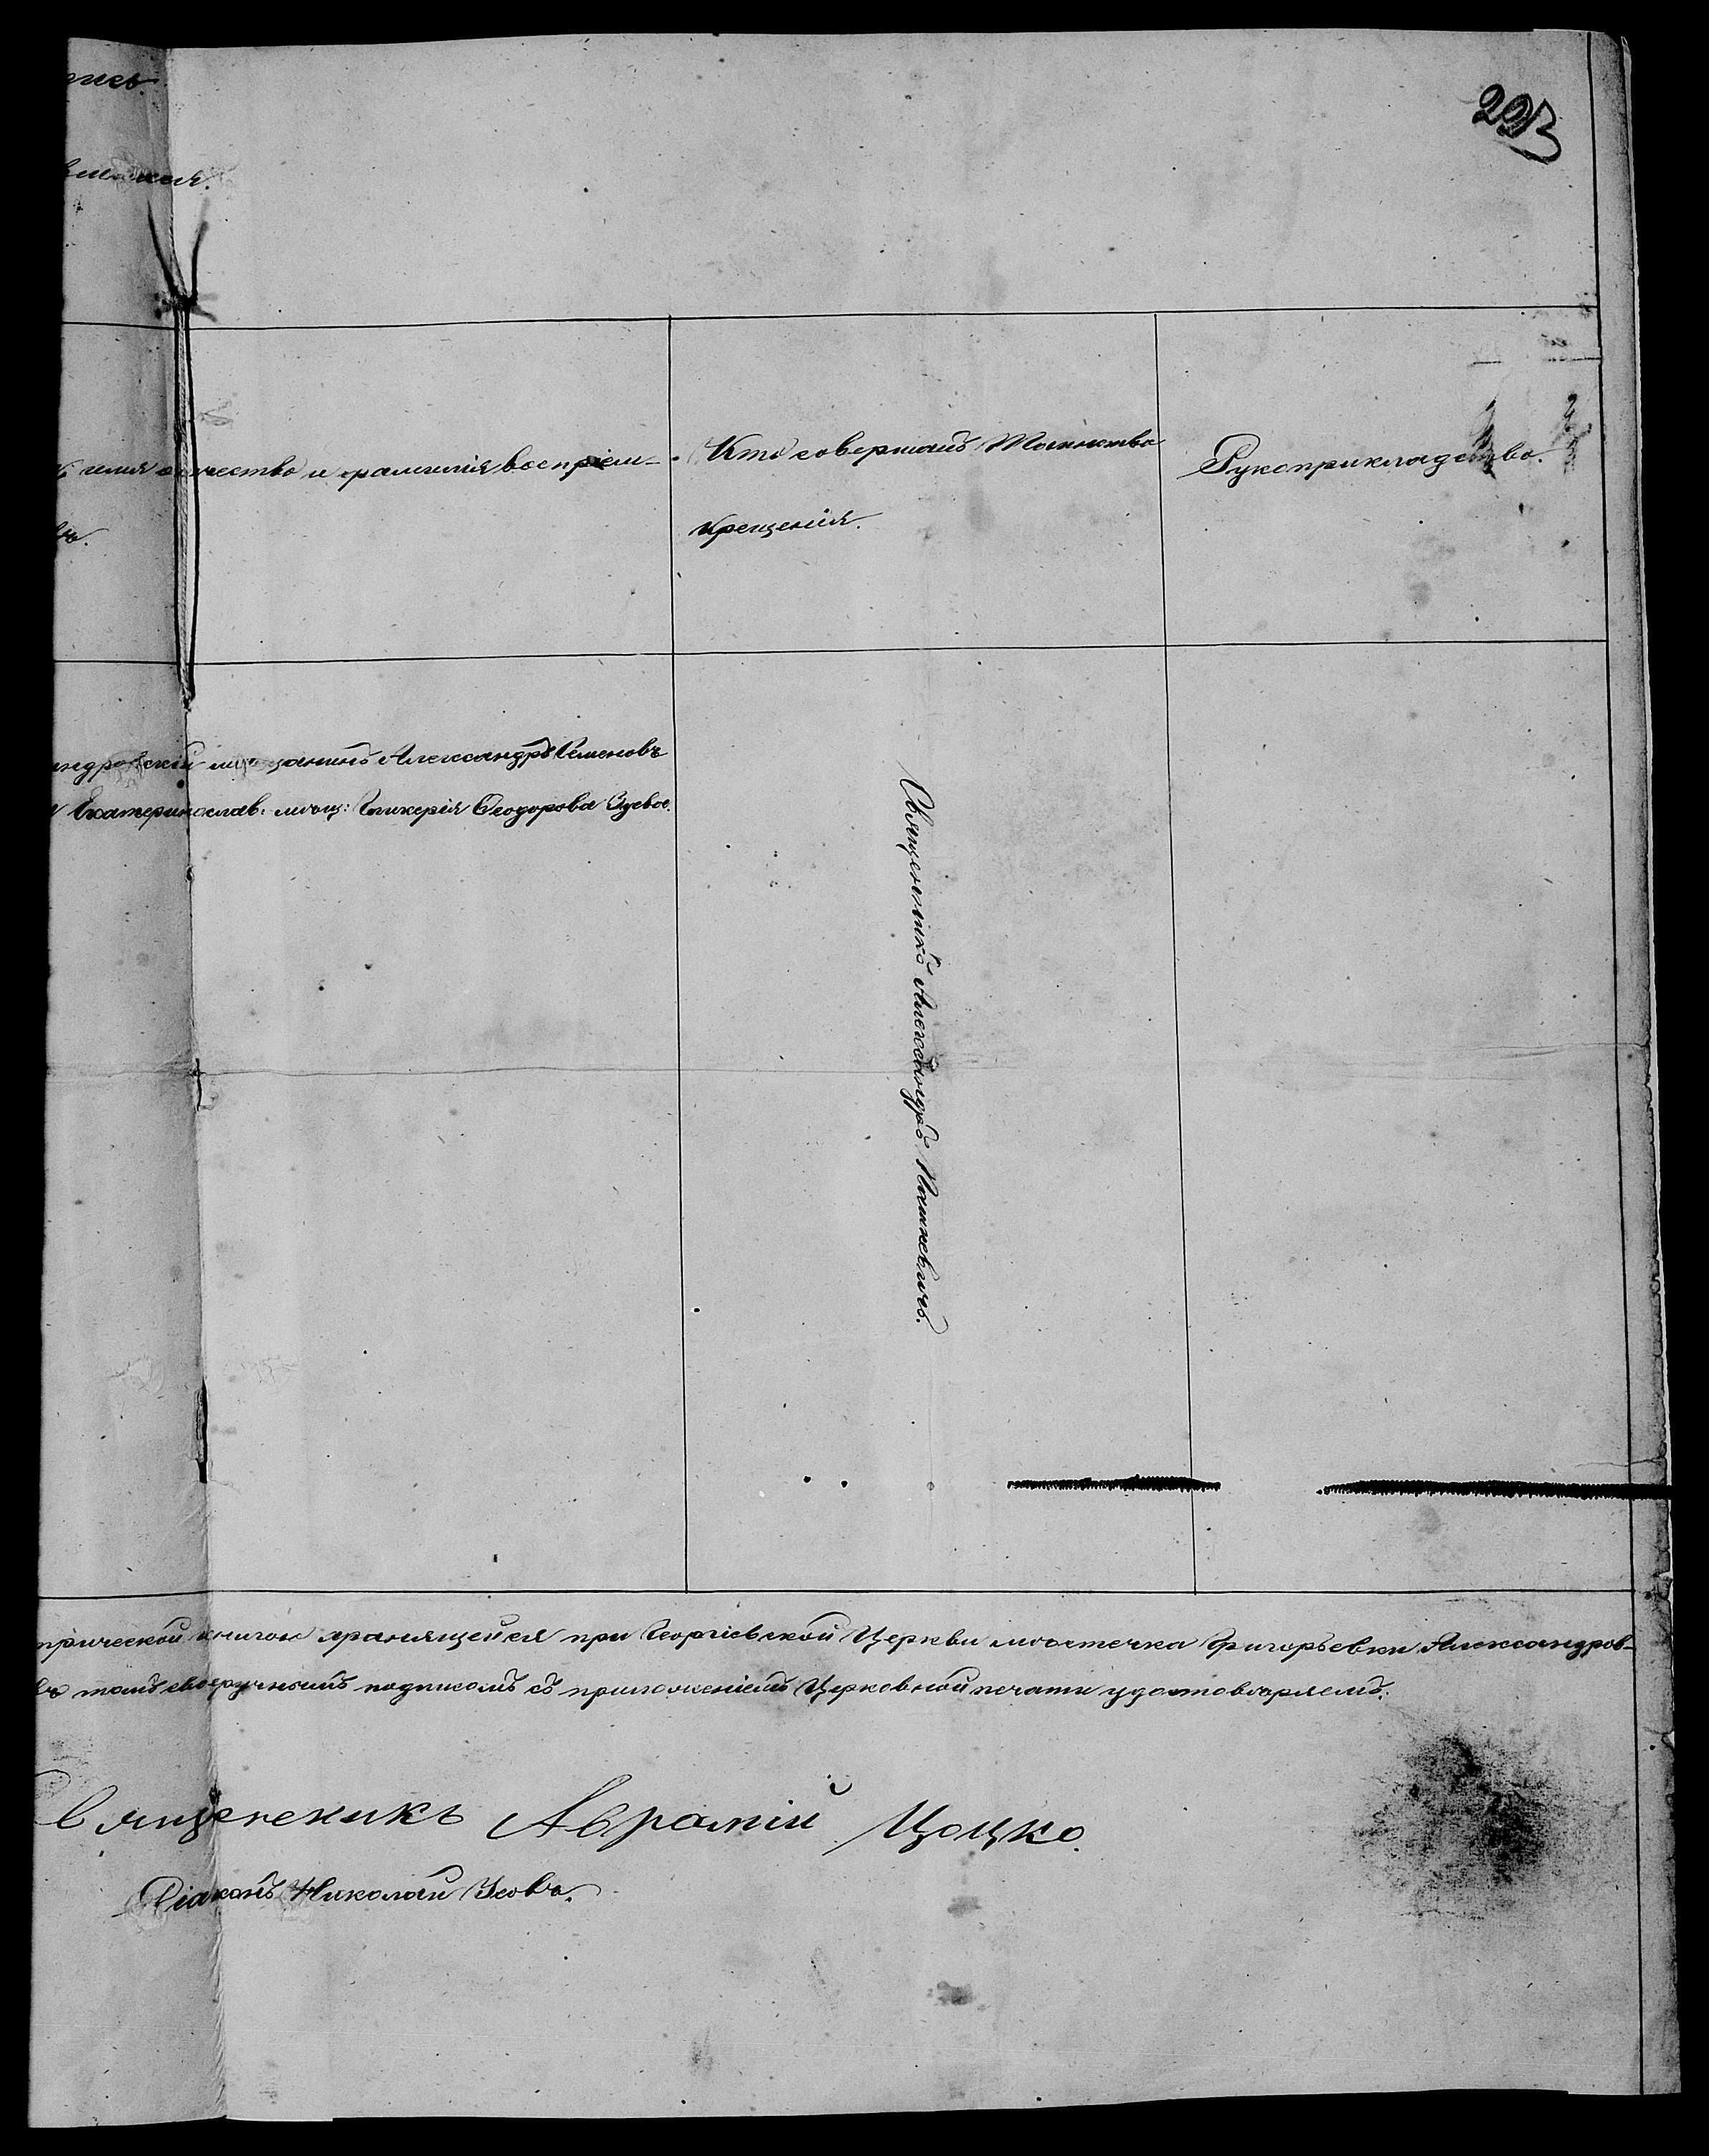 293
имя отчество и фамилия воспріем-
Кто совершалъ Таинство
крещенія.
Рукоприкладство.
ндровскій мѣщанинъ Александръ Семеновъ
и Екатеринослав. мѣщ: Гликерія Ѳеодорова Зуева.
Священникъ Александръ Пашкевичъ.
трической книгою хранящейся при Георгіевской Церкви мѣстечка Григорьевки Александров-
въ томъ своеручнымъ подписомъ съ приложеніемъ Церковной печати удостовѣряемъ:
Священникъ Аврамій Цоцко.
Діаконъ Николай Усовъ.